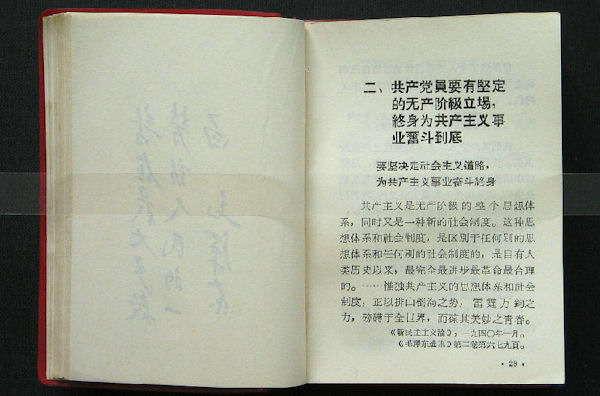 二、共产党員要有坚定
的无产阶級立場，
終身为共产主义事
业奋斗到底
要坚决走社会主义道路，
为共产主义事业奋斗終身
共产主义是无产阶級的整个思想体
系，同时又是一种新的社会制度。这种思
想体系和社会制度，是区别于任何别的思
想体系和任何别的社会制度的，是自有人
类历史以来，最完全最进步最革命最合理
的。……惟独共产主义的思想体系和社会
制度，正以排山倒海之势，雷霆万鈞之
力，磅礴于全世界，而葆其美妙之青春。
《新民主主义論》，一九四〇年一月。
《毛泽东选集》第二卷第六七九頁。
· 29 ·